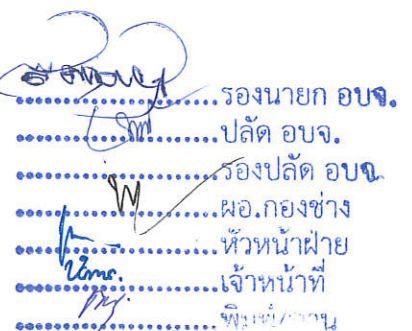 ........................รองนายก อบจ.
........................ปลัด อบจ.
........................รองปลัด อบจ.
........................ผอ.กองช่าง
........................หัวหน้าฝ่าย
........................เจ้าหน้าที่
........................พิมพ์/ทาน